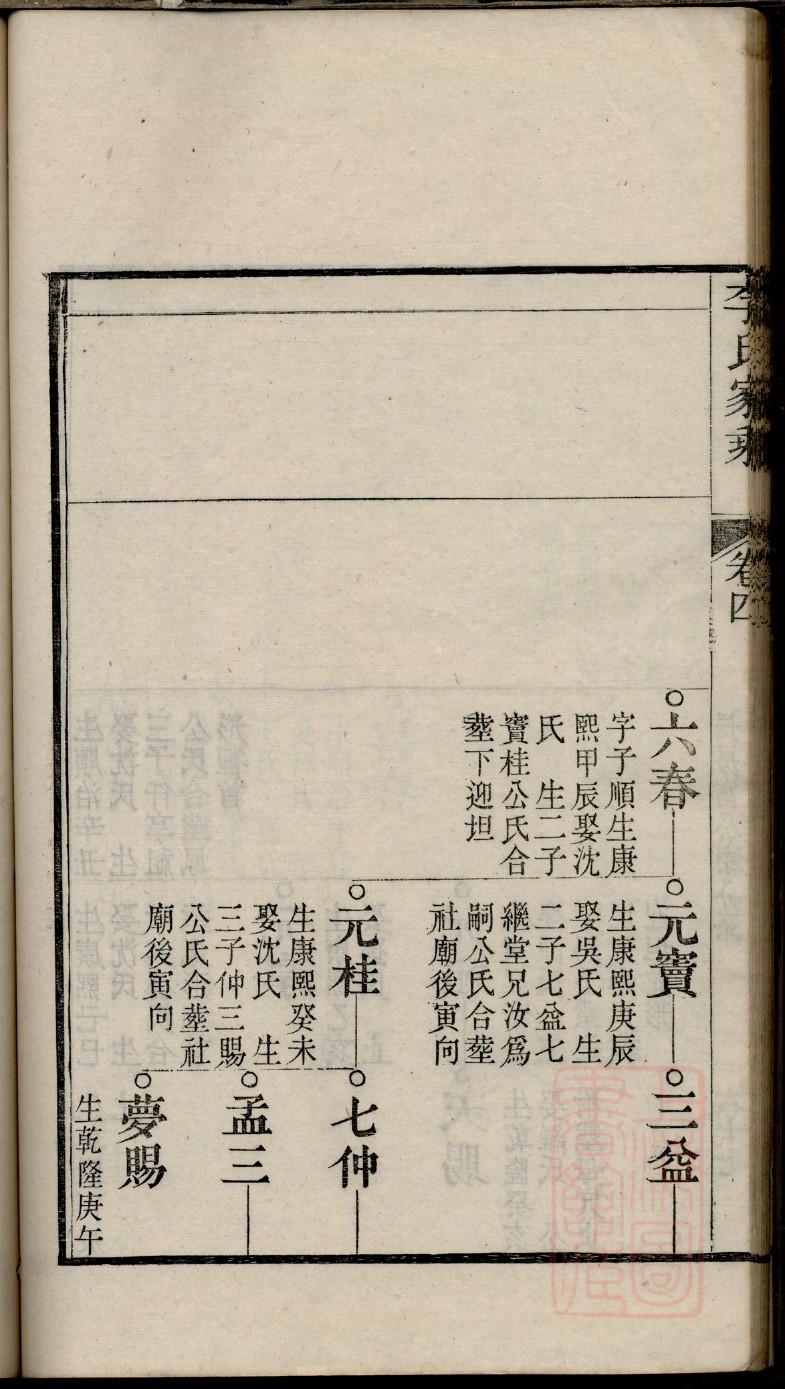 李氏家乘
卷四
六春
字子順生康
熙甲辰娶沈
氏　生二子
寶桂公氏合
塟下迎坦
元寶
生康熙庚辰
娶吳氏　生
二子七益七
繼堂兄汝爲
嗣公氏合塟
社廟後寅向
三益
元桂
生康熙癸未
娶沈氏　生
三子仲三賜
公氏合塟社
廟後寅向
七仲
孟三
夢賜
生乾隆庚午